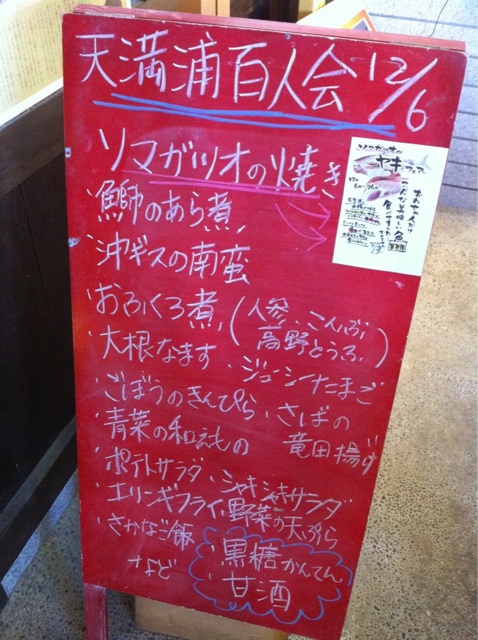 天満浦百人会 12/6
ソマガツオの焼き
鰤のあら煮
沖ギスの南蛮
おふくろ煮(人参、こんぶ、高野とうふ)
・大根なます ・ジューシーたまご
・ごぼうのきんぴら ・さばの竜田揚げ
・青菜の和えもの
・ポテトサラダ ・シャキシャキサラダ
・エリンギフライ ・野菜の天ぷら
・さかなご飯
・黒糖かんてん
・甘酒
など